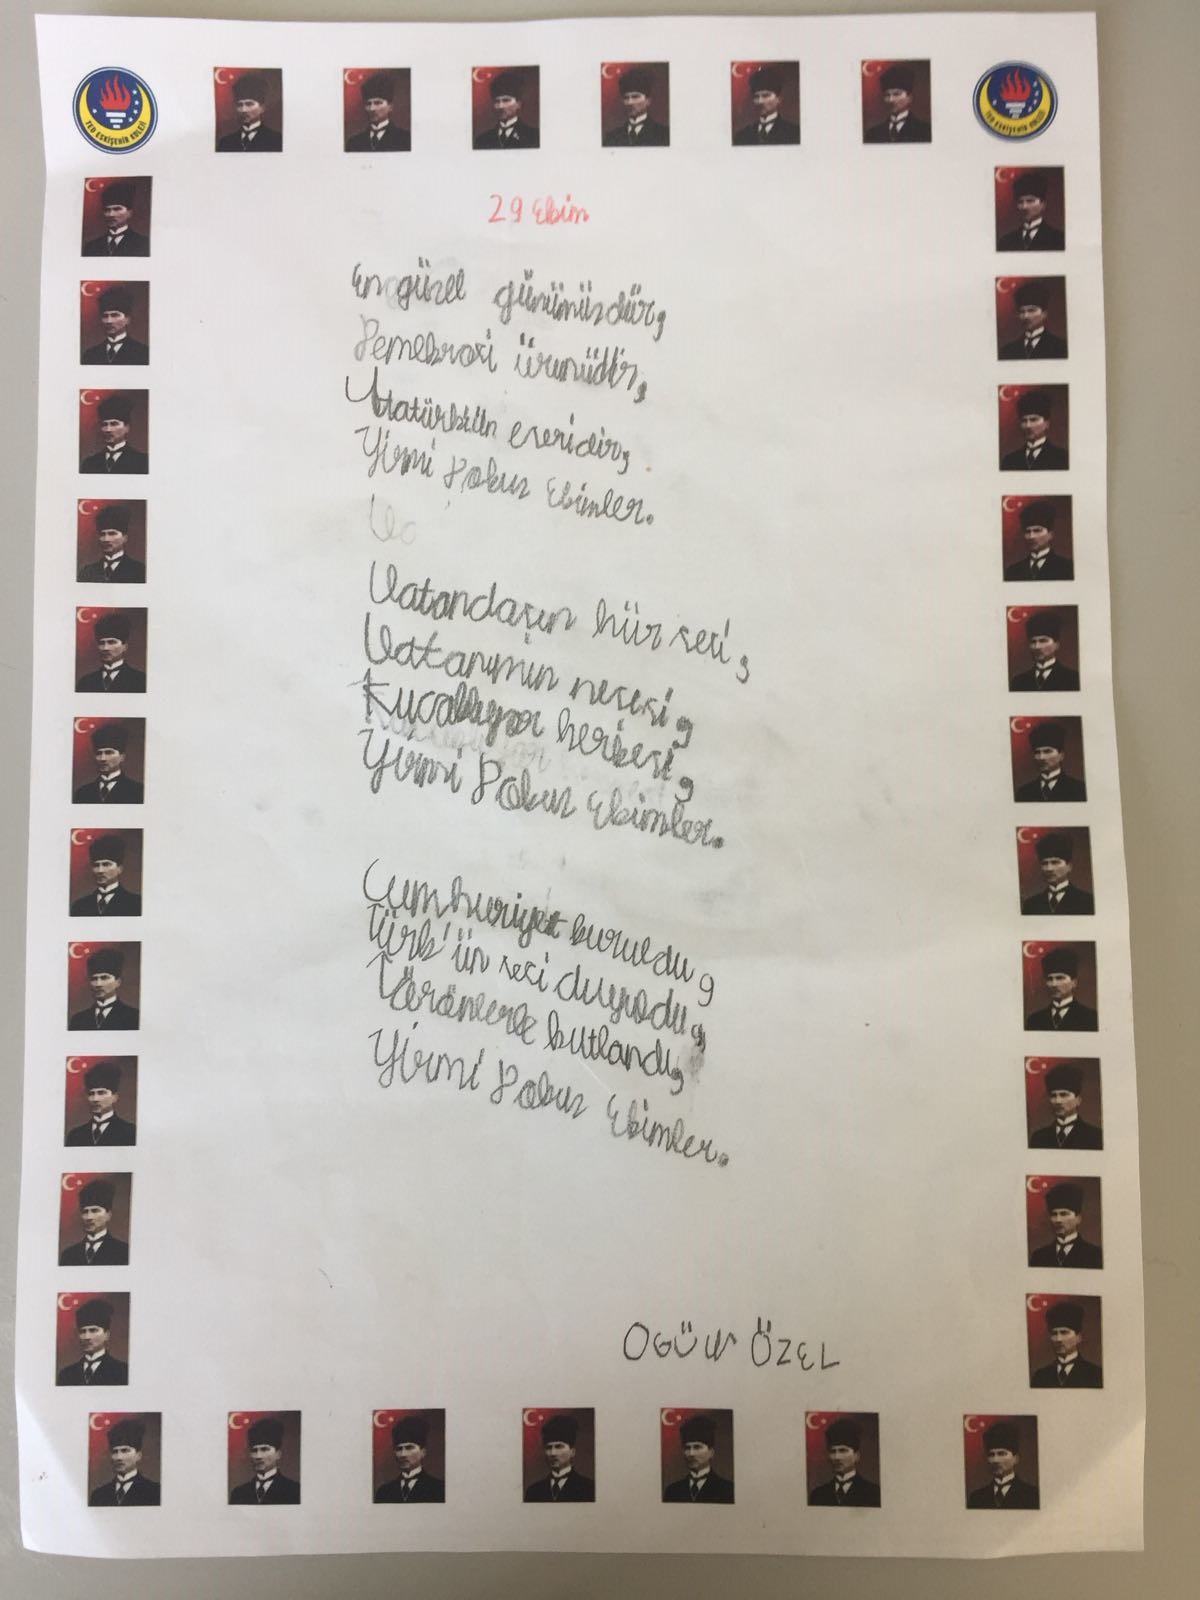 TED ESKİŞEHİR KOLEJİ
TED ESKİŞEHİR KOLEJİ
29 Ekim
En güzel günümüzdür,
Demokrasi ürünüdür,
Atatürk'ün eseridir,
Yirmi Dokuz Ekimler.
Va
Vatandaşın hür sesi,
Vatanımın neşesi,
Kucaklıyor herkesi,
Yirmi Dokuz Ekimler.
Cumhuriyet kuruldu,
Türk'ün sesi duyuldu,
Törenlerle kutlandı,
Yirmi Dokuz Ekimler.
OGÜN ÖZEL